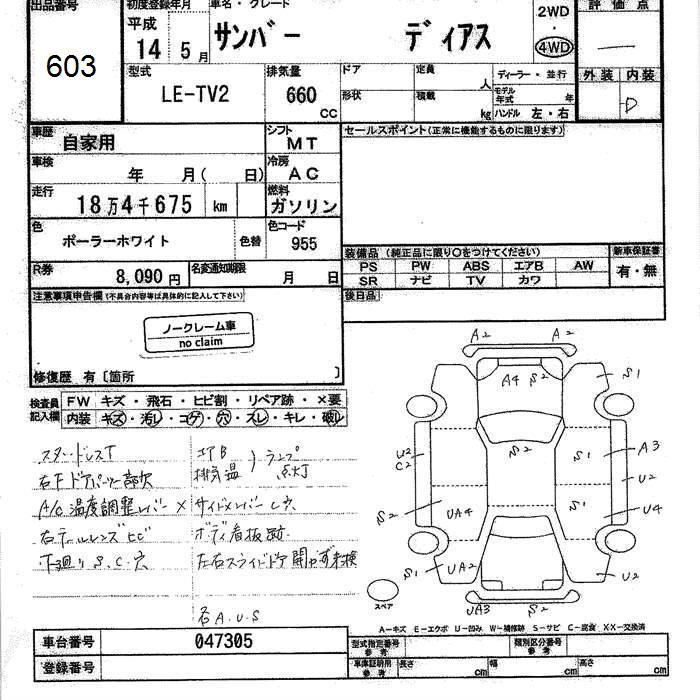 出品番号
603
初度登録年月
平成
14 5月
車名・グレード
サンバー ディアス
2WD
・
4WD
評価点
—
型式
LE-TV2
排気量
660 CC
ドア
形状
定員 人
積載 kg
ディーラー・並行
モデル年式 年
ハンドル 左・右
外装 内装
D
車歴
自家用
シフト
MT
セールスポイント(正常に機能するものに限ります)
車検
年 月( 日)
冷房
AC
走行
18万4千675 km
燃料
ガソリン
色
ポーラーホワイト
色替
色コード
955
装備品 (純正品に限り○をつけてください)
PS PW ABS エアB AW
SR ナビ TV カワ
新車保証書
有・無
R券
8,090円
名変通知期限
月 日
後日品
注意事項申告欄(不具合内容等は具体的に記入して下さい)
ノークレーム車
no claim
修復歴 有〔箇所 〕
検査員記入欄
FW キズ・飛石・ヒビ割・リペア跡・×要
内装 キズ・汚レ・コゲ・穴・スレ・キレ・破レ
スタッドレスT
右Fドアバイザー部欠
A/C温度調整レバー×
右テールレンズヒビ
下廻りS.C.穴
エアB
排気温
ランプ点灯
サイドメンバーC穴
ボディ看板跡
左右スライドドア開かず未検
右A.U.S
A2 A2
A4 S2
S1
U2
C2
S2
S1
A3
U2
UA4
S2
U4
S2
S1
UA2
S2
U2
UA3
S2
スペア
A-キズ E-エクボ U-凹み W-補修跡 S-サビ C-腐食 XX-交換済
車台番号
047305
登録番号
型式指定番号
参考
類別区分番号
参考
車庫証明用
参考
長さ cm
幅 cm
高さ cm